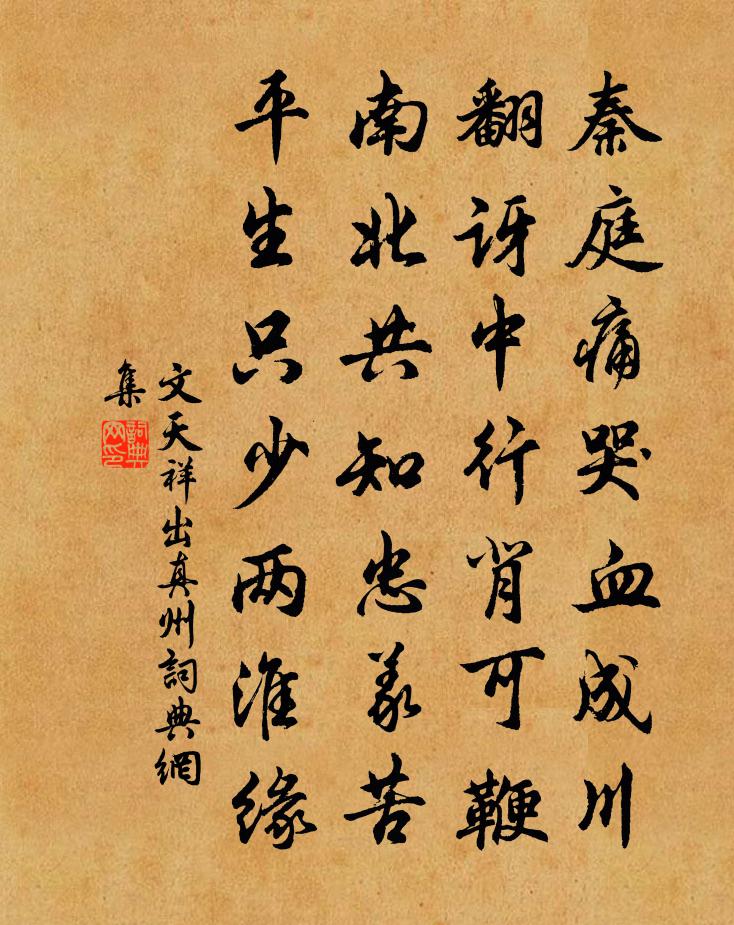 秦庭痛哭血成川
翻讶中行背可鞭
南北共知忠義苦
平生只少两淮缘
文天祥出真州詞典網
集
詞典
网印